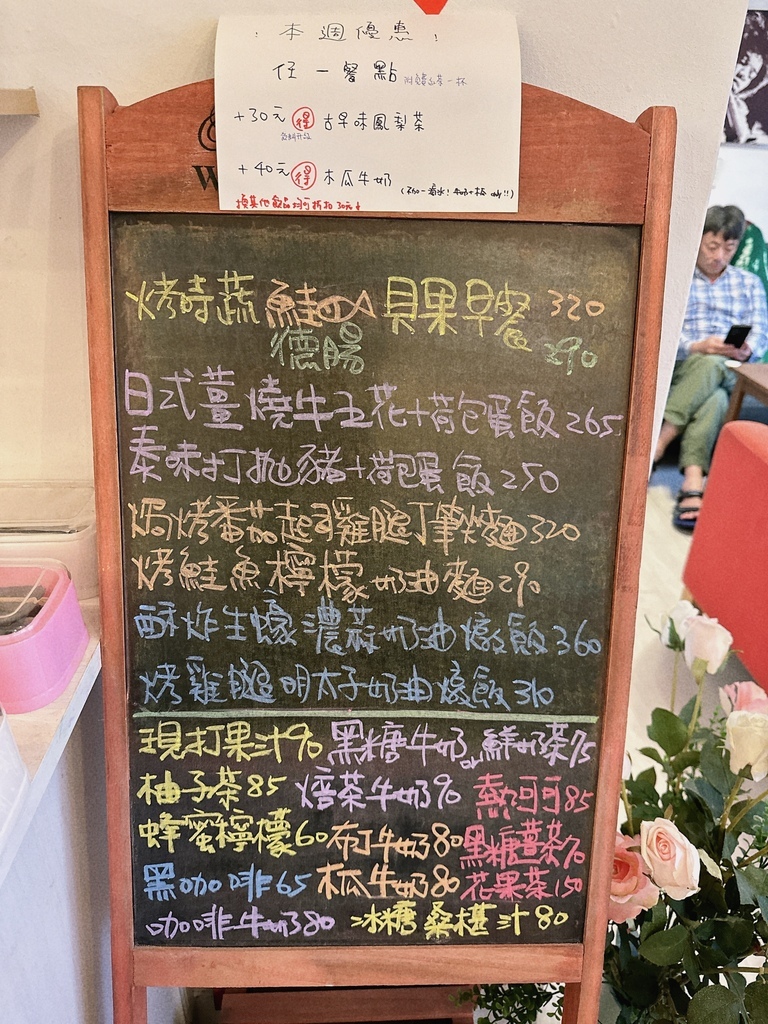 !本週優惠!
任一餐點 附贈紅茶一杯
+30元 得 古早味鳳梨茶
+40元 得 木瓜牛奶
換其他飲品均可折扣30元
W
烤時蔬鮭魚貝果早餐320
德腸 290
日式薑燒牛五花+荷包蛋飯265
泰味打拋豬+荷包蛋飯250
焗烤番茄起司雞腿丁筆尖麵320
烤鮭魚檸檬奶油麵290
酥炸生蠔濃蒜奶油燉飯360
烤雞腿明太子奶油燉飯310
現打果汁90 黑糖牛奶or鮮奶茶75
柚子茶85 焙茶牛奶90 熱可可85
蜂蜜檸檬60 布丁牛奶80 黑糖薑茶70
黑咖啡65 木瓜牛奶80 花果茶150
咖啡牛奶80 冰糖桑椹汁80